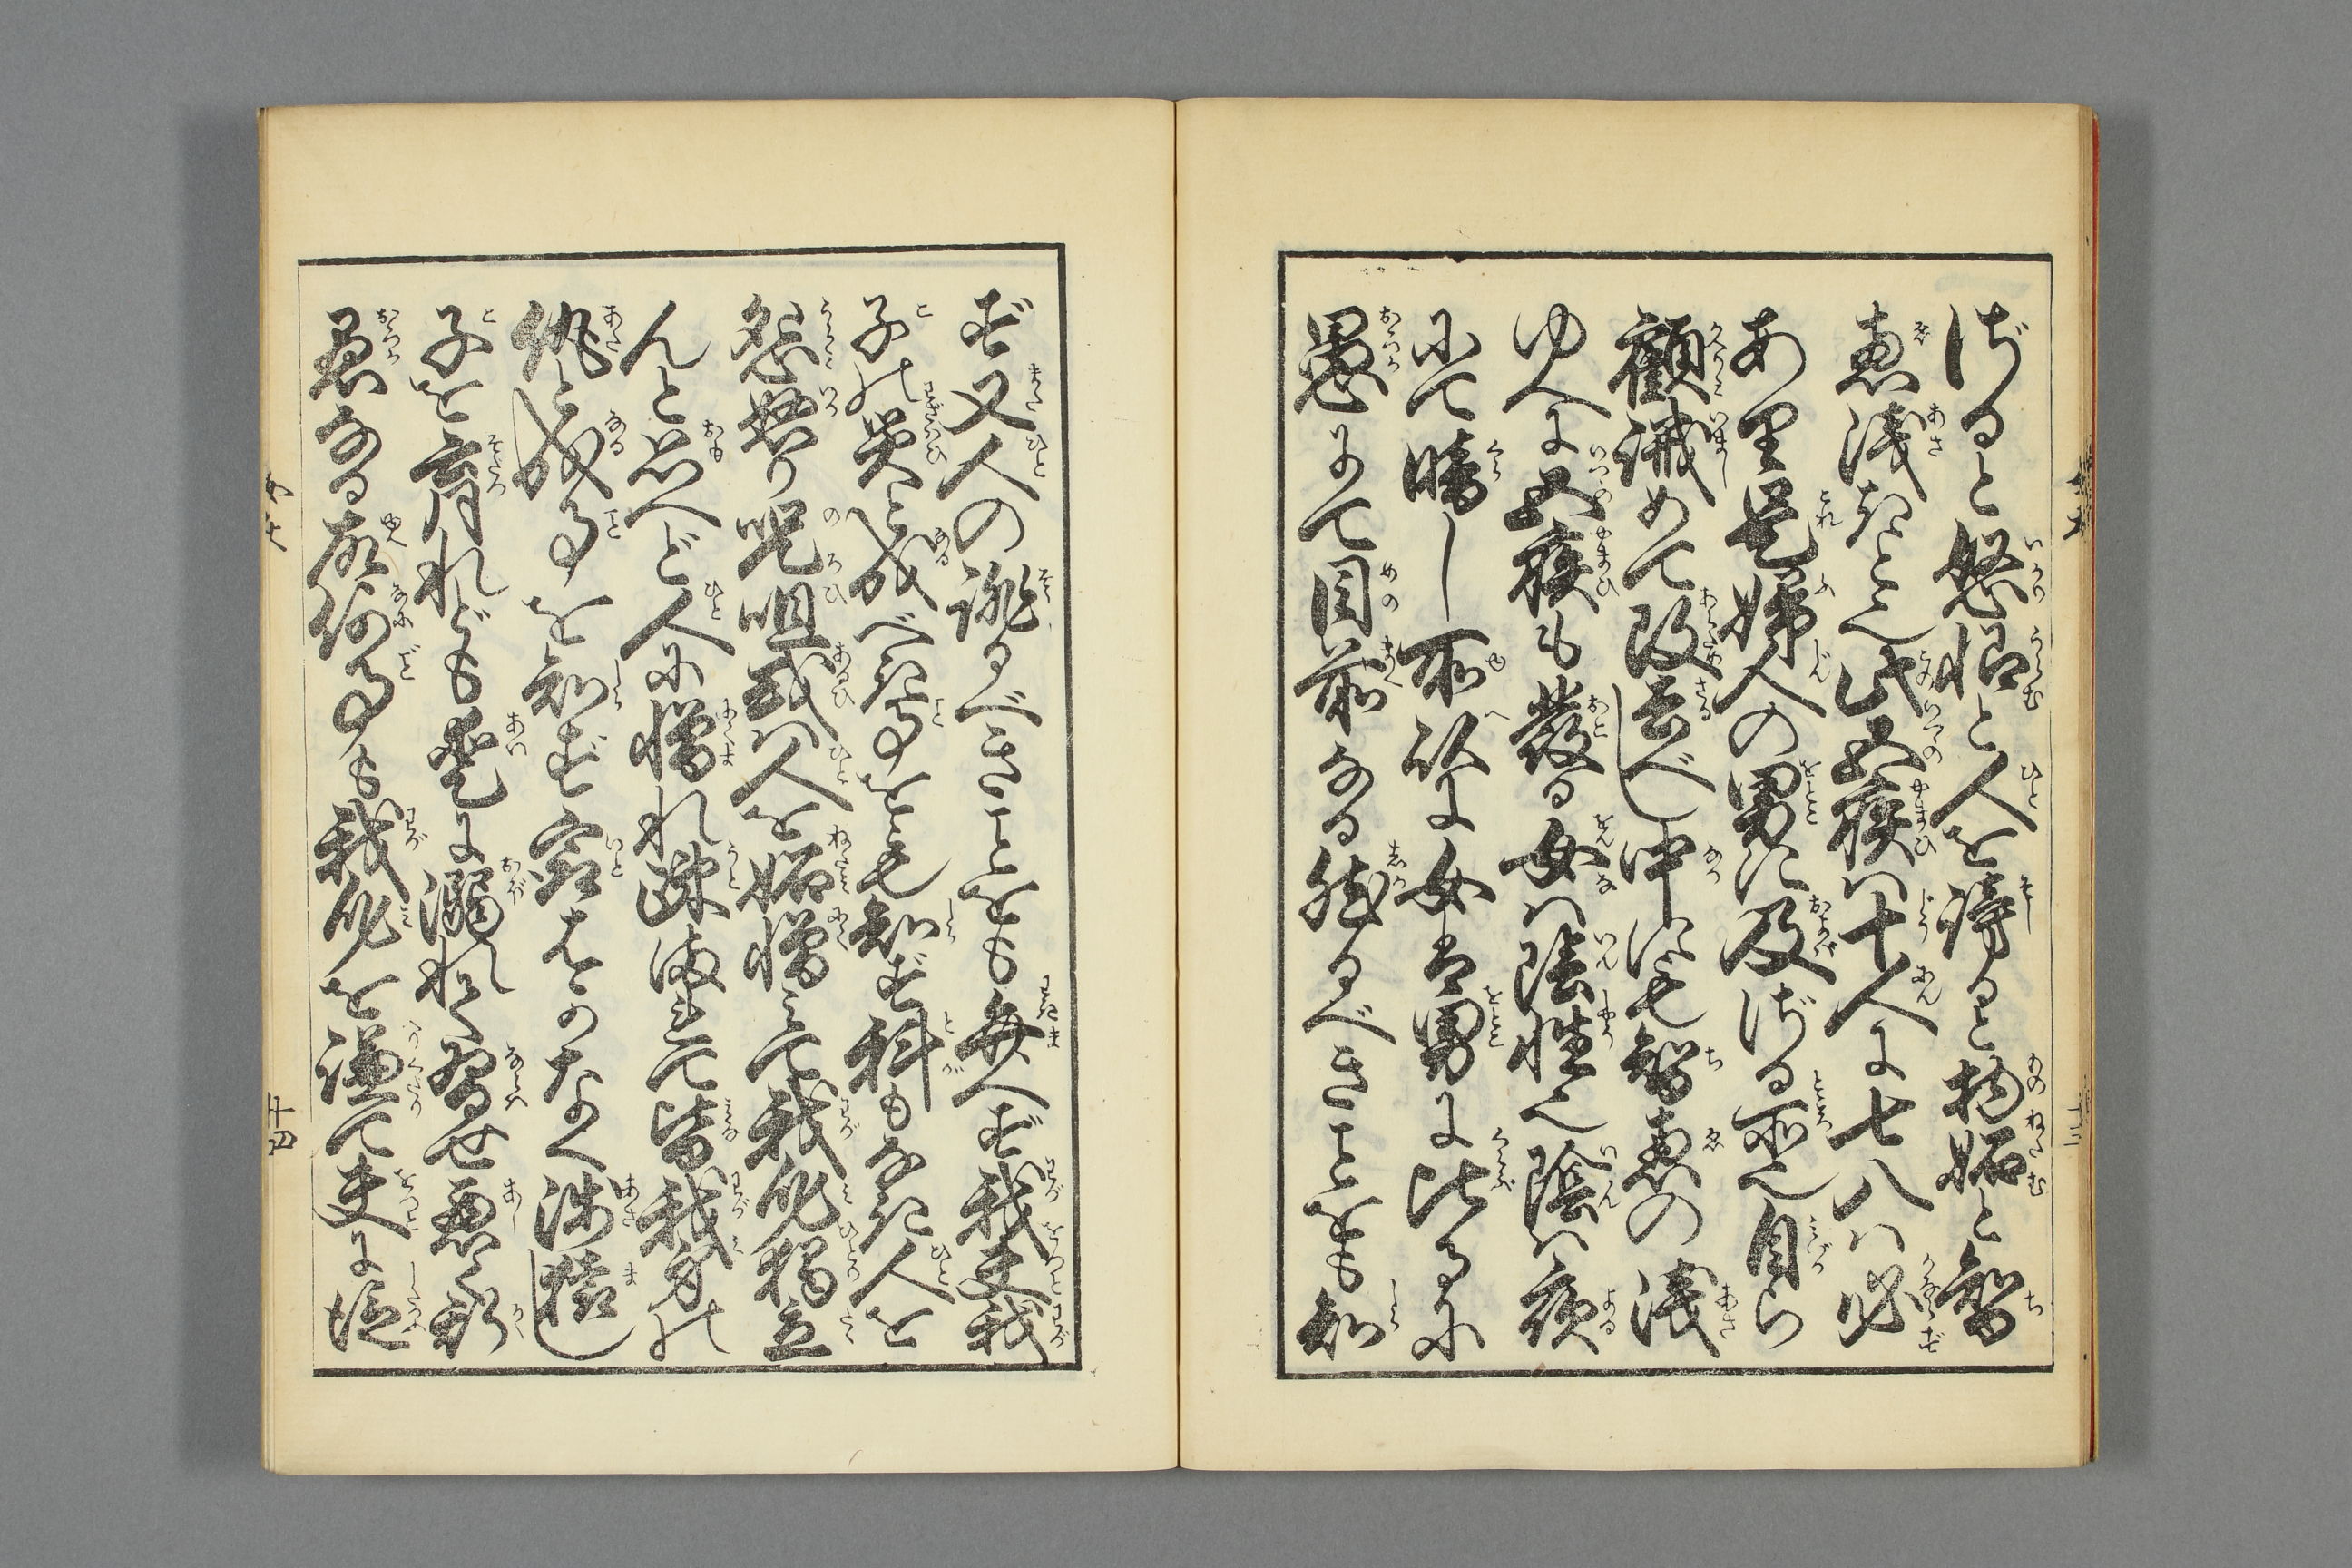 ざると怒怨と人を謗ると物妬と智
恵浅きと也此五疾は十人に七八は必
あり是婦人の男に及ざる所也自ら
顧誡めて改去べし中にも智恵の浅
ゆへに五疾も発る女は陰性也陰は夜
にて暗し所以に女は男に比るに
愚にて目前なる然るべきことをも知
ず又人の誹るべきことをも弁へず我夫我
子の災と成べき事をも知ず科もなき人を
怨怒り呪詛或は人を妬憎て我身独立
んと思へど人に憎れ疎まれて皆我身の
仇と成る事を知ず最はかなく浅猿し
子を育れども愛に溺れて習せ悪く斯
愚なる故何事も我身を謙て夫に従
女大
十三
女大
十四